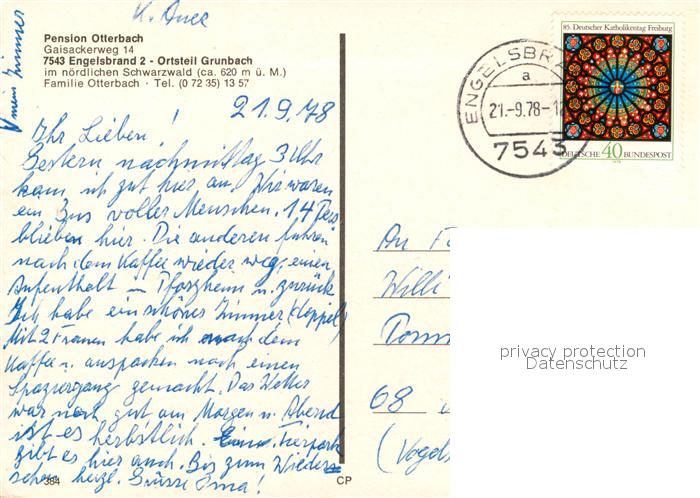 K. Anee
mein Zimmer
Pension Otterbach
Gaisackerweg 14
7543 Engelsbrand 2 - Ortsteil Grunbach
im nördlichen Schwarzwald (ca. 620 m ü. M.)
Familie Otterbach · Tel. (0 72 35) 13 57
21.9.78
Ihr Lieben!
Gestern nachmittag 3 Uhr
kam ich gut hier an. Wir waren
ein Bus voller Menschen. 14 Pers
blieben hier. Die anderen fuhren
nach dem Kaffee wieder weg, einen
Aufenthalt – Pforzheim u. zurück
Ich habe ein schönes Zimmer (Doppel)
Mit 2 Frauen habe ich nach dem
Kaffee u. auspacken noch einen
Spaziergang gemacht. Das Wetter
war noch gut am Morgen u. Abend
ist es herbstlich. Tierpark
gibt es hier auch. Bis zum Wieder-
sehen herzl. Grüsse Oma!
384
CP
ENGELSBRA
a
21.-9.78-1
7543
85. Deutscher Katholikentag Freiburg
DEUTSCHE 40 BUNDESPOST
1978
An F
Willi
68
(Vogel
privacy protection
Datenschutz